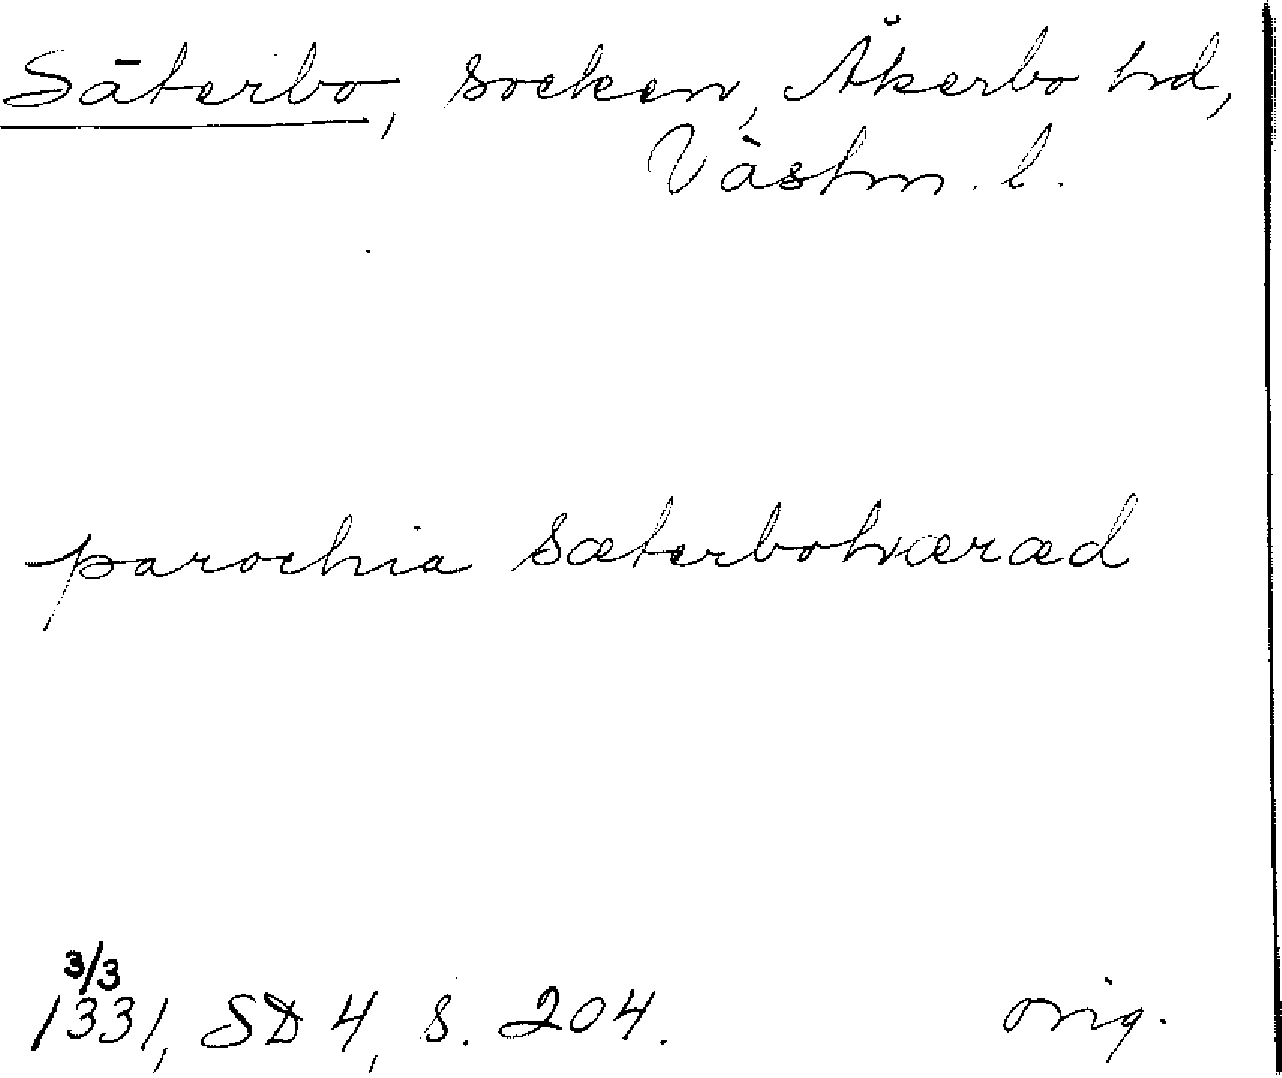 Säterbo, socken, Åkerbo hd,
Västm. l.
parochia Sæterbohæræd
3/3
1331, SD 4, s. 204. orig.